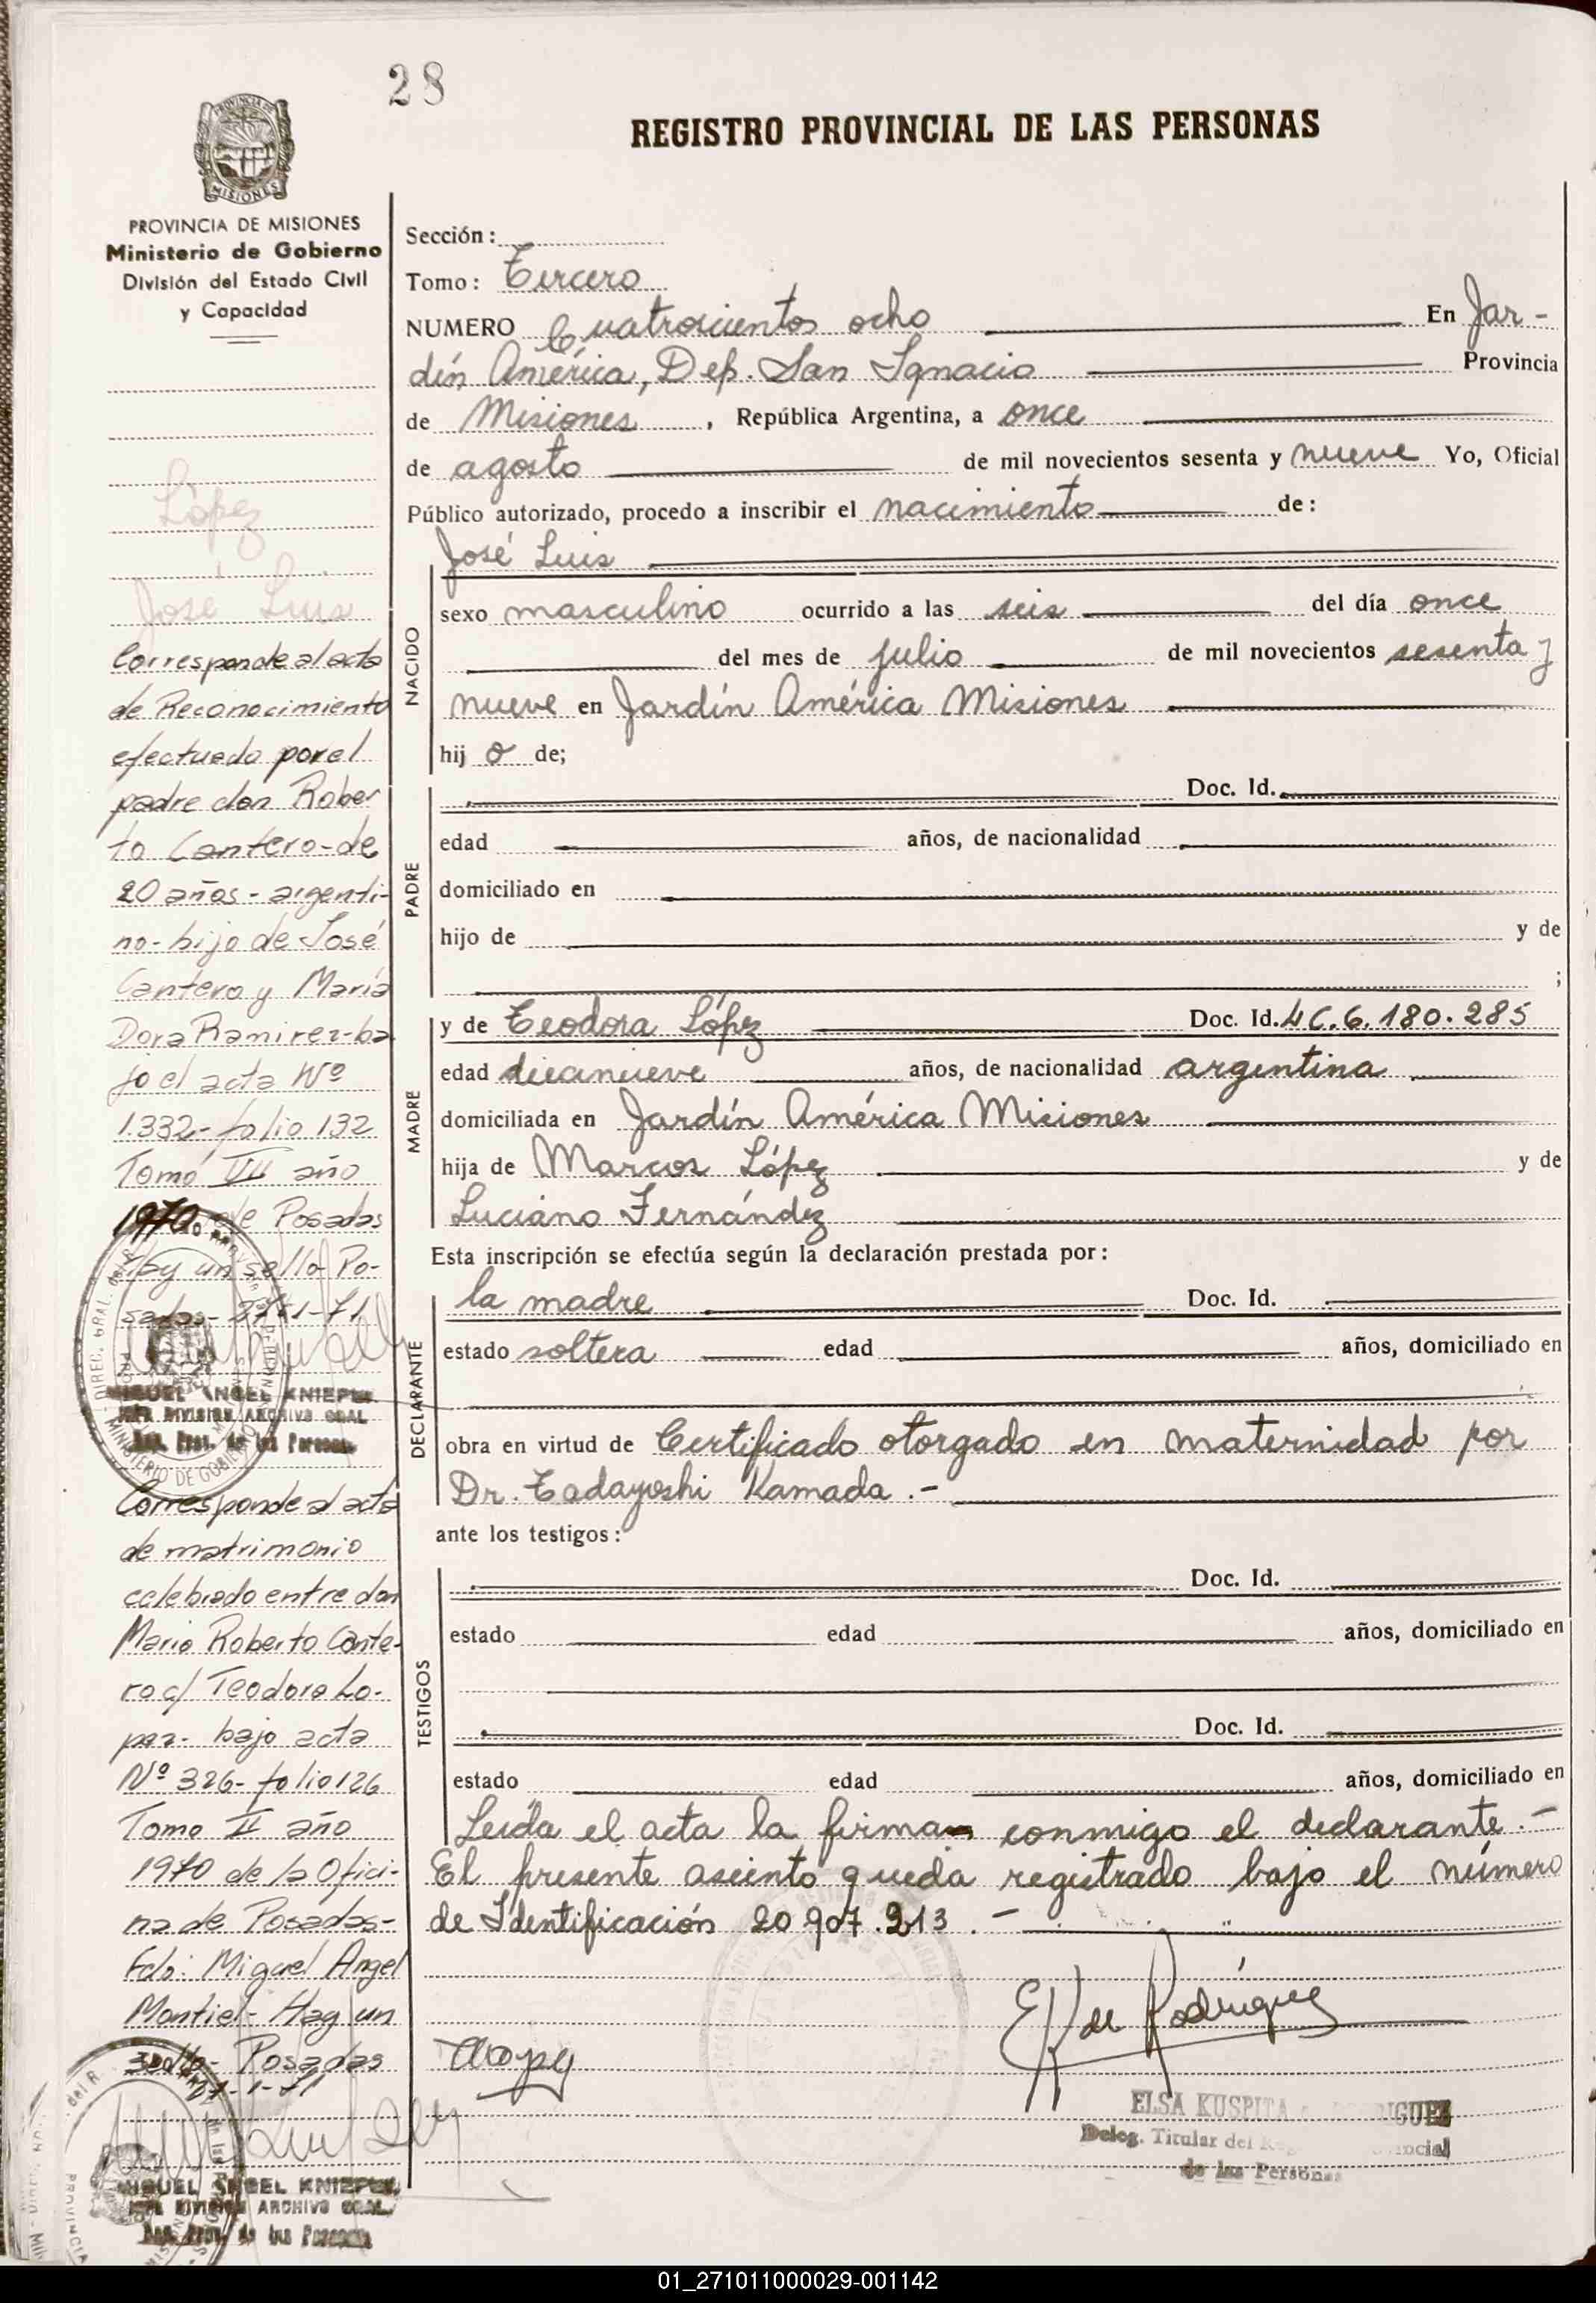 28
REGISTRO PROVINCIAL DE LAS PERSONAS
PROVINCIA DE
MISIONES
PROVINCIA DE MISIONES
Ministerio de Gobierno
División del Estado Civil
y Capacidad
López
José Luis
Corresponde al acta
de Reconocimiento
efectuado por el
padre don Rober
to Cantero-de
20 años-argenti-
no-hijo de José
Cantero y María
Dora Ramirez-ba
jo el acta Nº
1332-folio 132
Tomo VII año
1970 de Posadas
Hay un sello Po-
sadas-
MIGUEL ANGEL
JEFE DIVISION ARCHIVO GRAL
de las Personas
Corresponde al acta
de matrimonio
celebrado entre don
Mario Roberto Cante-
ro c/ Teodora Lo-
pez- bajo acta
Nº 326-folio 126
Tomo II año
1970 de la Ofici-
na de Posadas-
Fdo: Miguel Angel
Montiel-Hay un
sello- Posadas
MIGUEL ANGEL
JEFE DIVISION ARCHIVO GRAL
de las Personas
Sección:
Tomo: Tercero
NUMERO Cuatrocientos ocho En Jar-
dín América, Dep. San Ignacio Provincia
de Misiones , República Argentina, a once
de agosto de mil novecientos sesenta y nueve Yo, Oficial
Público autorizado, procedo a inscribir el nacimiento de:
José Luis
NACIDO
sexo masculino ocurrido a las seis del día once
del mes de julio de mil novecientos sesenta y
nueve en Jardín América Misiones
hij o de;
PADRE
Doc. Id.
edad años, de nacionalidad
domiciliado en
hijo de y de
;
MADRE
y de Teodora López Doc. Id. LC. 6.180.285
edad diecinueve años, de nacionalidad argentina
domiciliada en Jardín América Misiones
hija de Marcos López y de
Luciano Fernández
Esta inscripción se efectúa según la declaración prestada por:
DECLARANTE
la madre Doc. Id.
estado soltera edad años, domiciliado en
obra en virtud de Certificado otorgado en maternidad por
Dr. Tadayoshi Kamada.-
ante los testigos:
TESTIGOS
Doc. Id.
estado edad años, domiciliado en
Doc. Id.
estado edad años, domiciliado en
Leída el acta la firma conmigo el declarante.-
El presente asiento queda registrado bajo el número
de Identificación 20 907.213.-
E K de Rodríguez
ELSA KUSPITA RODRIGUEZ
Deleg. Titular del
de las Personas
01_271011000029-001142